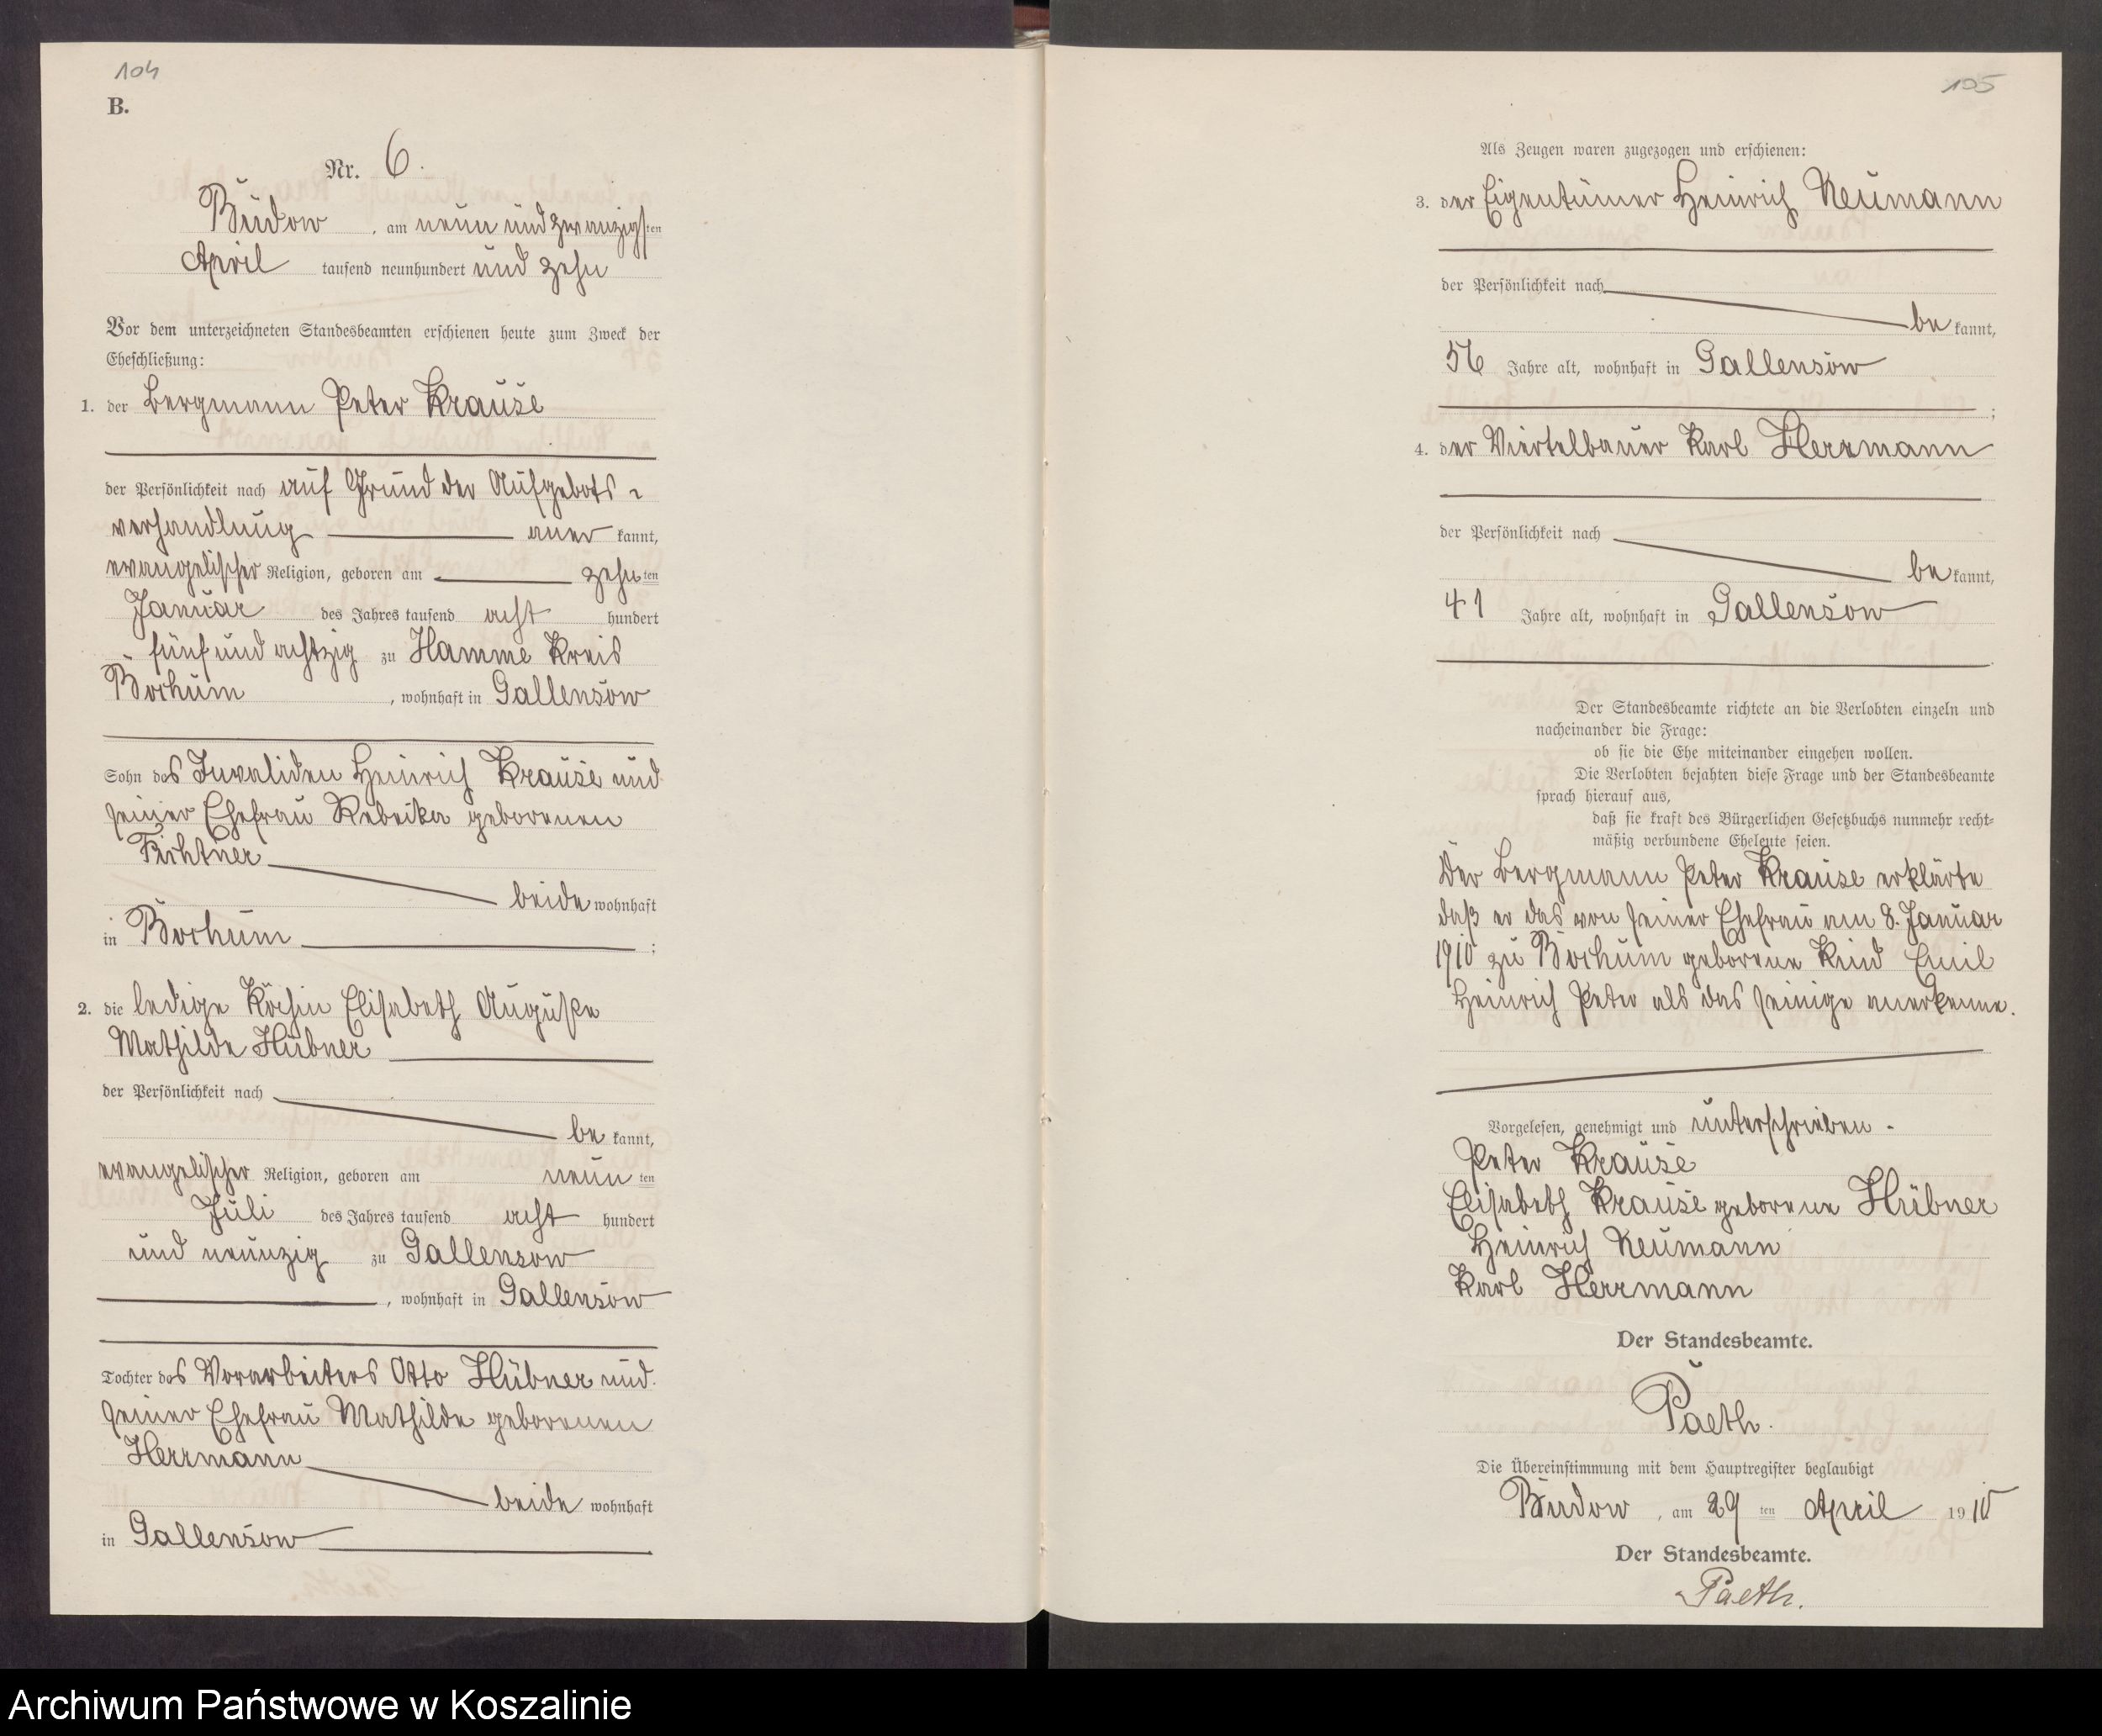 104
B.
Nr. 6.
Budow, am neun und zwanzigsten
April tausend neunhundert und zehn
Vor dem unterzeichneten Standesbeamten erschienen heute zum Zweck der
Eheschließung:
1. der Bergmann Peter Krause
der Persönlichkeit nach auf Grund der Aufgebots-
verhandlung aner kannt,
evangelischer Religion, geboren am zehn ten
Januar des Jahres tausend acht hundert
fünf und achtzig zu Hamme Kreis
Bochum, wohnhaft in Gallensow
Sohn des Invaliden Heinrich Krause und
seiner Ehefrau Rebeika geborenen
Fichtner
beide wohnhaft
in Bochum ;
2. die ledige Köchin Elisabeth Auguste
Mathilde Hübner
der Persönlichkeit nach
be kannt,
evangelischer Religion, geboren am neun ten
Juli des Jahres tausend acht hundert
und neunzig zu Gallensow
, wohnhaft in Gallensow
Tochter des Vorarbeiters Otto Hübner und
seiner Ehefrau Mathilde geborenen
Herrmann
beide wohnhaft
in Gallensow
105
Als Zeugen waren zugezogen und erschienen:
3. der Eigentümer Heinrich Neumann
der Persönlichkeit nach
be kannt,
56 Jahre alt, wohnhaft in Gallensow
;
4. der Viertelbauer Karl Herrmann
der Persönlichkeit nach
be kannt,
41 Jahre alt, wohnhaft in Gallensow
Der Standesbeamte richtete an die Verlobten einzeln und
nacheinander die Frage:
ob sie die Ehe miteinander eingehen wollen.
Die Verlobten bejahten diese Frage und der Standesbeamte
sprach hierauf aus,
daß sie kraft des Bürgerlichen Gesetzbuchs nunmehr recht-
mäßig verbundene Eheleute seien.
Der Bergmann Peter Krause erklärte
daß er das von seiner Ehefrau am 8. Januar
1910 zu Bochum geborene Kind Emil
Heinrich Peter als das seinige anerkenne.
Vorgelesen, genehmigt und unterschrieben.
Peter Krause
Elisabeth Krause geborene Hübner
Heinrich Neumann
Karl Herrmann
Der Standesbeamte.
Paeth.
Die Übereinstimmung mit dem Hauptregister beglaubigt
Budow, am 29 ten April 1910
Der Standesbeamte.
Paeth.
Archiwum Państwowe w Koszalinie